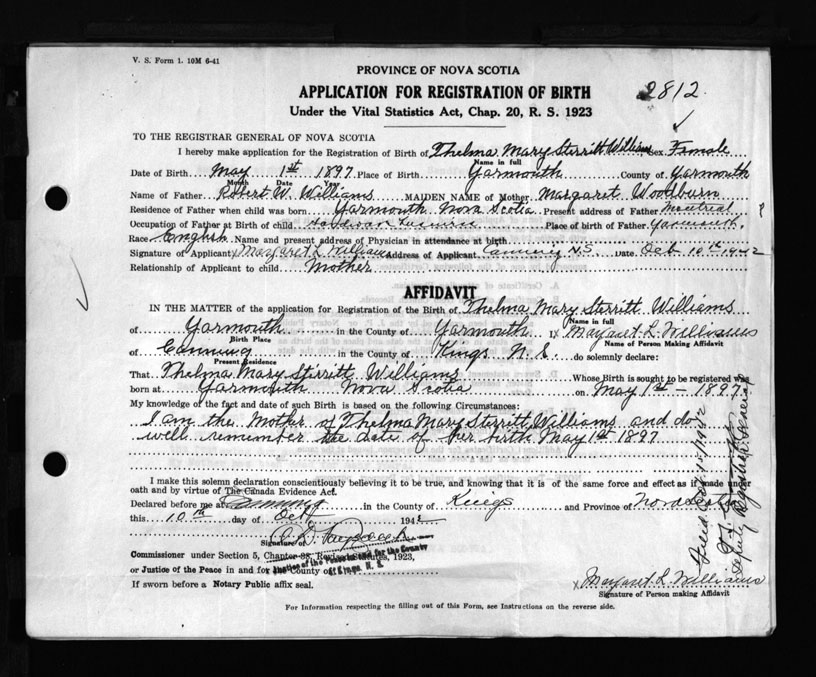 V. S. Form 1. 10M 6-41
PROVINCE OF NOVA SCOTIA
APPLICATION FOR REGISTRATION OF BIRTH
2812
Under the Vital Statistics Act, Chap. 20, R. S. 1923
TO THE REGISTRAR GENERAL OF NOVA SCOTIA
I hereby make application for the Registration of Birth of Thelma Mary Sterritt Williams Sex Female
Name in full
Date of Birth May 1st 1897 Place of Birth Yarmouth County of Yarmouth
Month Date Year
Name of Father Robert W. Williams MAIDEN NAME of Mother Margaret Woodburn
Residence of Father when child was born Yarmouth Nova Scotia Present address of Father Montreal ?
Occupation of Father at Birth of child Place of birth of Father Yarmouth
Race English Name and present address of Physician in attendance at birth
Signature of Applicant x Margaret L. Williams Address of Applicant Canning N.S. Date Oct 10th 1942
Relationship of Applicant to child Mother
AFFIDAVIT
IN THE MATTER of the application for Registration of the Birth of Thelma Mary Sterritt Williams
Name in full
of Yarmouth in the County of Yarmouth I x Margaret L. Williams
Birth Place Name of Person Making Affidavit
of Canning in the County of Kings N. S. do solemnly declare:
Present Residence
That Thelma Mary Stirritt Williams Whose Birth is sought to be registered was
born at Yarmouth Nova Scotia on May 1st - 1897
My knowledge of the fact and date of such Birth is based on the following Circumstances:
I am the Mother of Thelma Mary Sterritt Williams and do
well remember the date of her birth May 1st 1897
I make this solemn declaration conscientiously believing it to be true, and knowing that it is of the same force and effect as if made under
oath and by virtue of The Canada Evidence Act.
Declared before me at Canning in the County of Kings and Province of Nova Scotia
this 10th day of Oct 1942
Signature of
Commissioner under Section 5, Chapter 38, Revised Statutes, 1923,
Justice of the Peace in and for the County
of Kings N. S.
or Justice of the Peace in and for the County of
If sworn before a Notary Public affix seal.
x Margaret L. Williams
Signature of Person making Affidavit
For Information respecting the filling out of this Form, see Instructions on the reverse side.
Deputy Registrar General